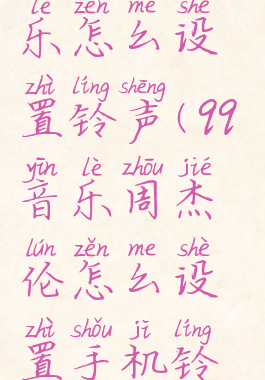 lè zěn me shè
乐怎么设
zhì líng shēng
置铃声(99
yīn lè zhōu jié
音乐周杰
lún zěn me shè
伦怎么设
zhì shǒu jī líng
置手机铃